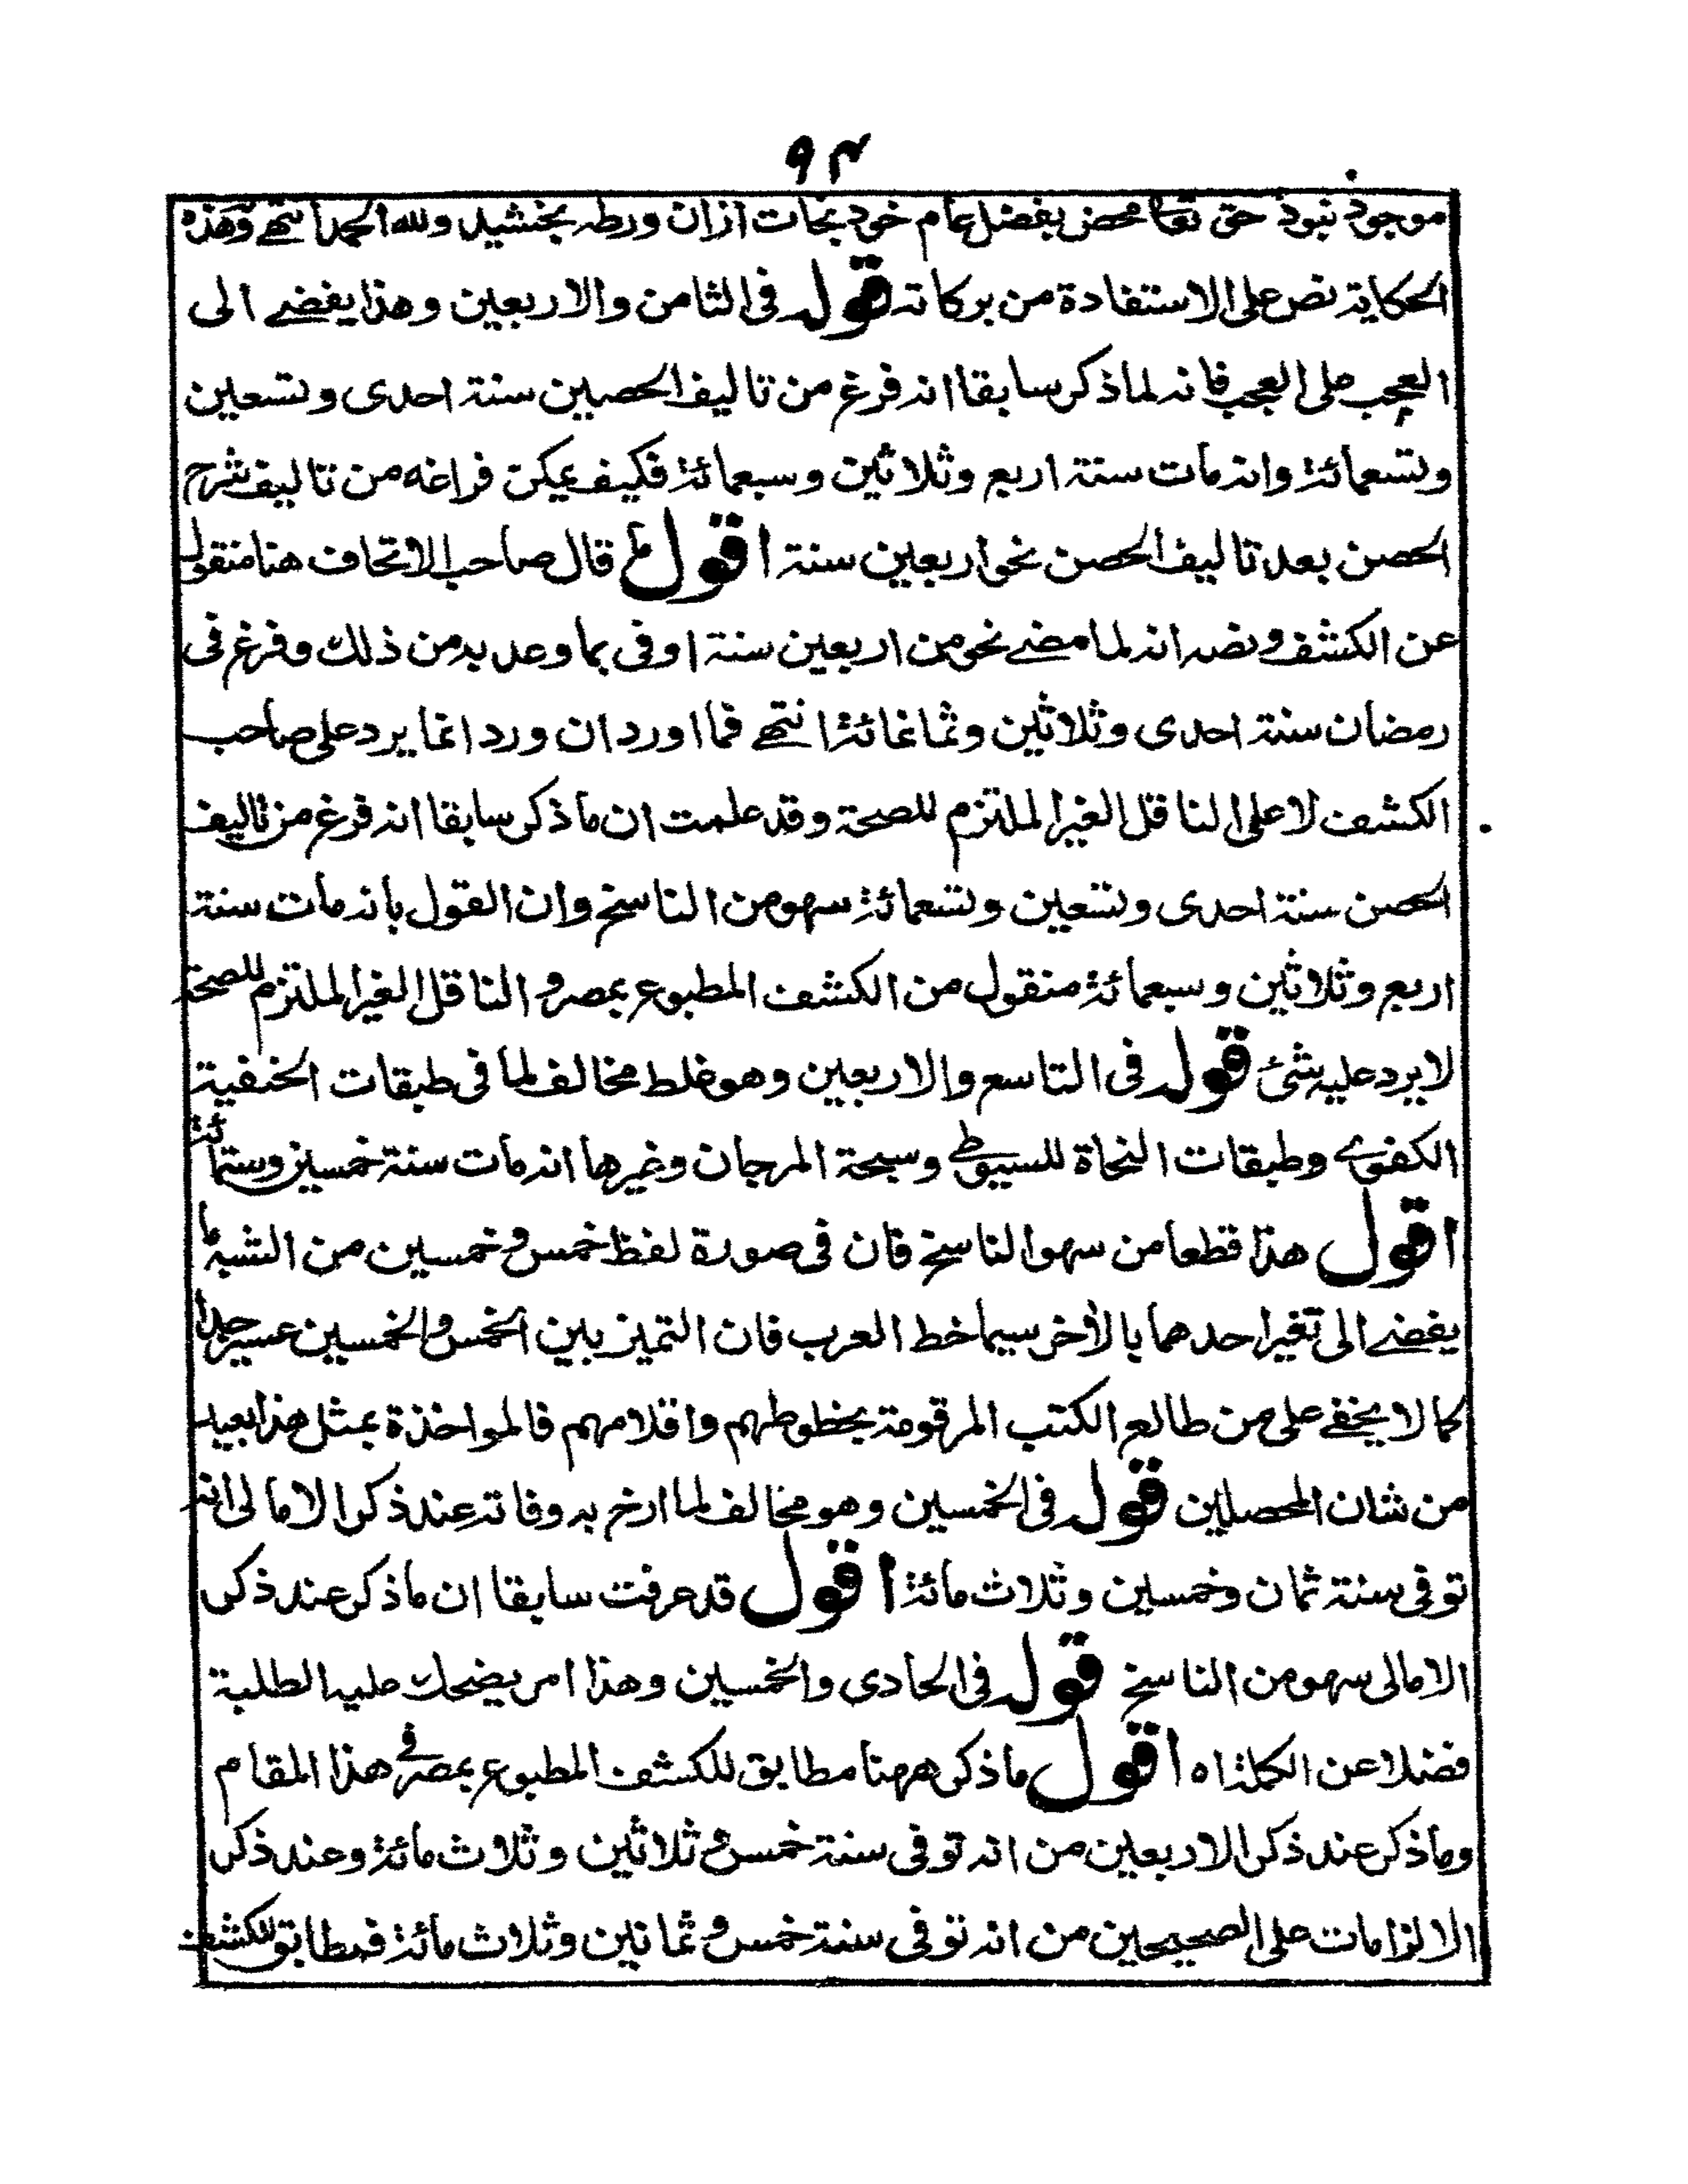 ٩٣
موجود نبود حق تعالى محض بفضل عام خود نجات ازان ورطه بخشيد ولله الحمد انتهى وهذه
الحكاية نص على الاستفادة من بركاته قوله فى الثامن والاربعين وهذا يفضے الى
العجب على العجب فانه لما ذكر سابقا انه فرغ من تاليف الحصين سنة احدى وتسعين
وتسعمائة وانه مات سنة اربع وثلاثين وسبعمائة فكيف يمكن فراغه من تاليف شرح
الحصن بعد تاليف الحصن نحو اربعين سنة اقول قال صاحب الاتحاف هنا منقولا
عن الكشف ونصه انه لما مضے نحو من اربعين سنة اوفى بما وعد به من ذلك وفرغ فى
رمضان سنة احدى وثلاثين وثمانمائة انتهے فما اورد ان ورد انما يرد على صاحب
الكشف لا على الناقل الغير الملتزم للصحة وقد علمت ان ما ذكر سابقا انه فرغ من تاليف
الحصن سنة احدى وتسعين وتسعمائة سهو من الناسخ وان القول بانه مات سنة
اربع وثلاثين وسبعمائة منقول من الكشف المطبوع بمصر والناقل الغير الملتزم للصحة
لا يرد عليه شئ قوله فى التاسع والاربعين وهو غلط مخالف لما فى طبقات الحنفية
الكفوے وطبقات النحاة للسيوطے وسبحة المرجان وغيرها انه مات سنة خمسين وستمائة
اقول هذا قطعا من سهو الناسخ فان فى صورة لفظ خمس وخمسين من الشبه ما
يفضے الى تغير احدهما بالأخر سيما خط العرب فان التميز بين الخمس والخمسين عسير جدا
كما لا يخفے على من طالع الكتب المرقومة بخطوطهم واقلامهم فالمواخذة بمثل هذا بعيد
من شان المحصلين قوله فى الخمسين وهو مخالف لما ارخ به وفاته عند ذكر الامالى انه
توفى سنة ثمان وخمسين وثلاث مائة اقول قد عرفت سابقا ان ما ذكر عند ذكر
الامالى سهو من الناسخ قوله فى الحادى والخمسين وهذا امر يضحك عليه الطلبة
فضلا عن الكملة اه اقول ما ذكر ههنا مطابق للكشف المطبوع بمصر فى هذا المقام
وما ذكر عند ذكر الاربعين من انه توفى سنة خمس وثلاثين وثلاث مائة وعند ذكر
الالزامات على الصحيحين من انه توفى سنة خمس وثمانين وثلاث مائة فمطابق للكشف